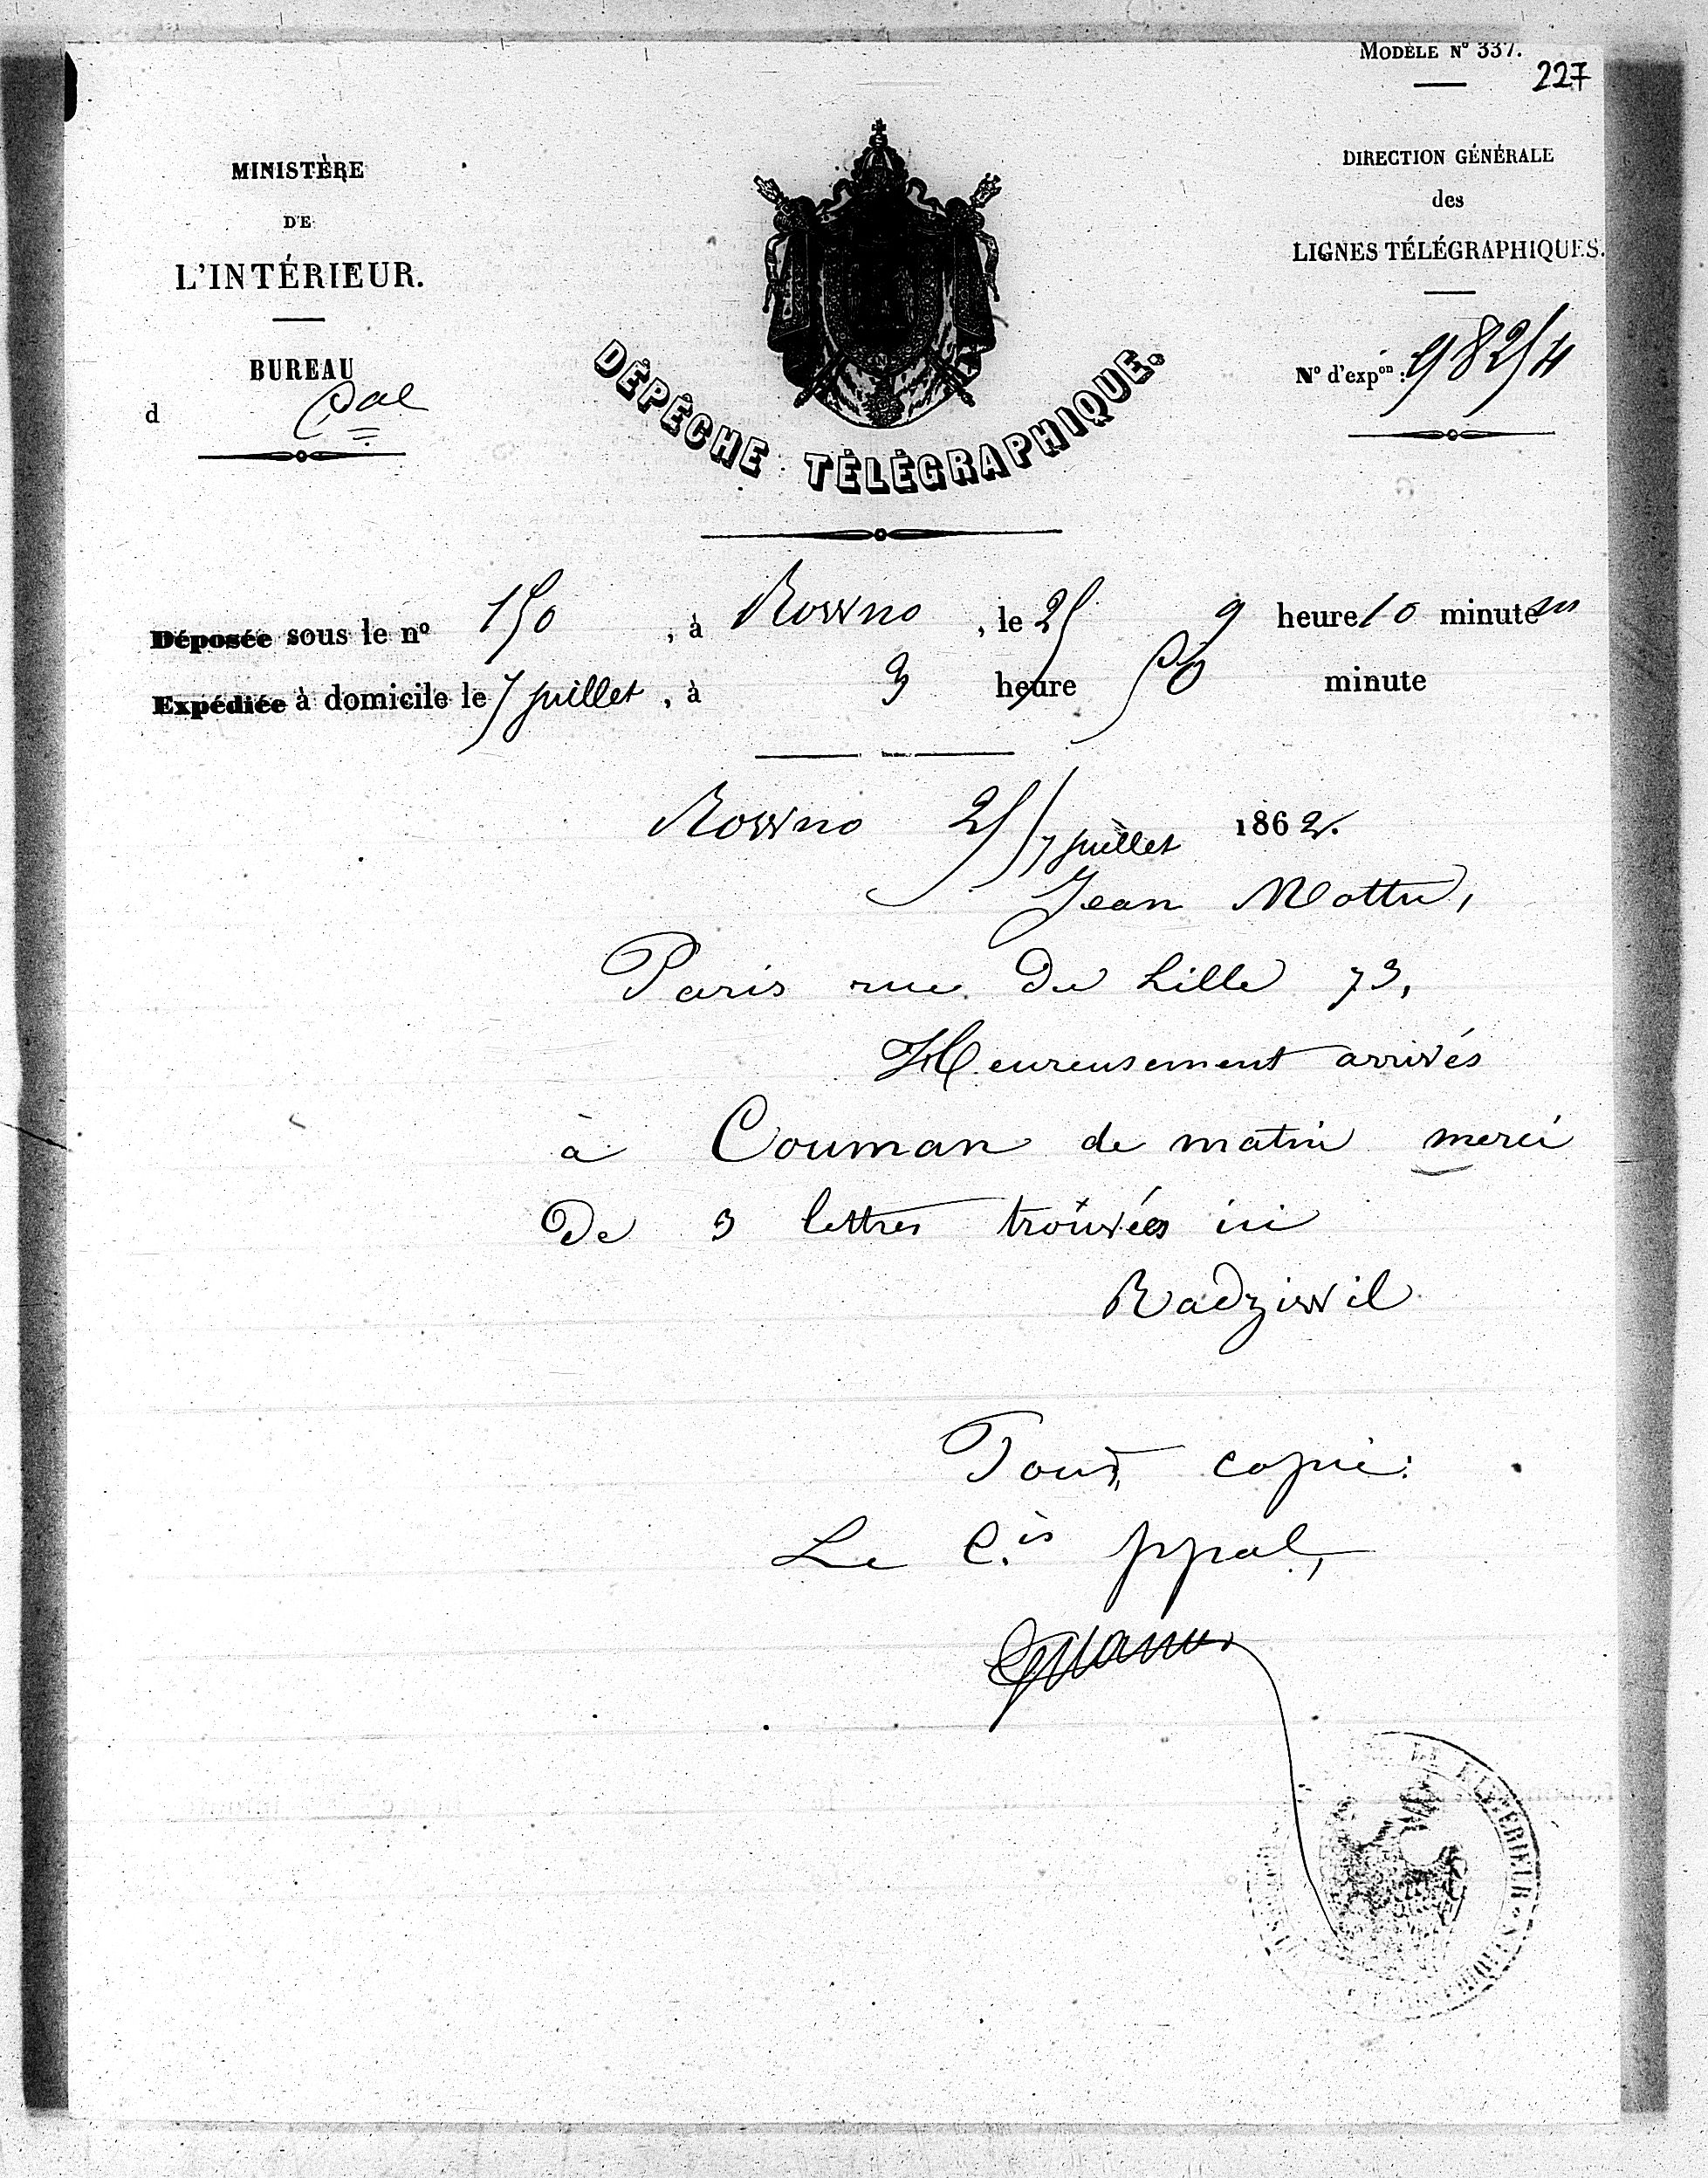 MODÈLE N° 337.
227
MINISTÈRE
DE
L'INTÉRIEUR.
BUREAU
d
DIRECTION GÉNÉRALE
des
LIGNES TÉLÉGRAPHIQUES.
N° d'expon : 982/4
DÉPÊCHE TÉLÉGRAPHIQUE.
Déposée sous le n° 150, à Rowno, le 25 9 heure 10 minute m
Expédiée à domicile le 7 juillet, à 3 heure 50 minute
Rowno 25/7 juillet 1862.
Jean Mottu,
Paris rue de Lille 73,
Heureusement arrivés
à Couman de matin merci
de 3 lettres trouvées ici
Radziwil
Pour copie:
Le C.is ppal,
DE L'INTERIEUR